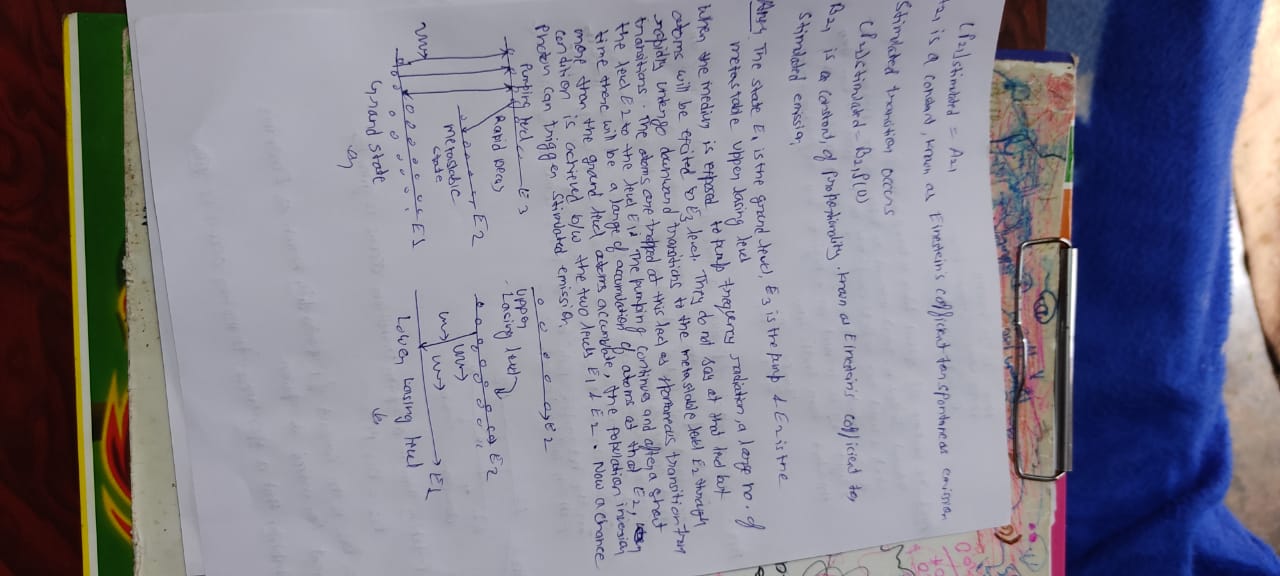 (P21)stimulated = A21
A21 is a constant, known as Einestein's cofficient for spontaneous emission
Stimulated transition occurs
(P21)stimulated = B21 P(υ)
B21 is a constant of proportionality, known as Einestein's cofficient for
Stimulated emission.
Ans4 The state E1 is the ground level, E3 is the pump & E2 is the
metastable upper lasing level
When the medium is exposed to pump frequency radiation, a large no. of
atoms will be excited to E3 level. They do not say at that level but
rapidly undergo downward transitions to the metastable level E2 through
transitions. The atoms are trapped at this level as spontaneous transition from
the level E2 to the level E1. The pumping continues and after a short
time there will be a large of accumulation of atoms at that E2,
more than the ground level atoms accumulate, the population inversion
condition is achieved b/w the two levels E1 & E2. Now a chance
Photon can trigger stimulated emission.
Pumping level
E3
Rapid Decay
E2
metastable
state
E1
Ground State
E2
Upper
Lasing level
E2
E1
Lower Lasing level